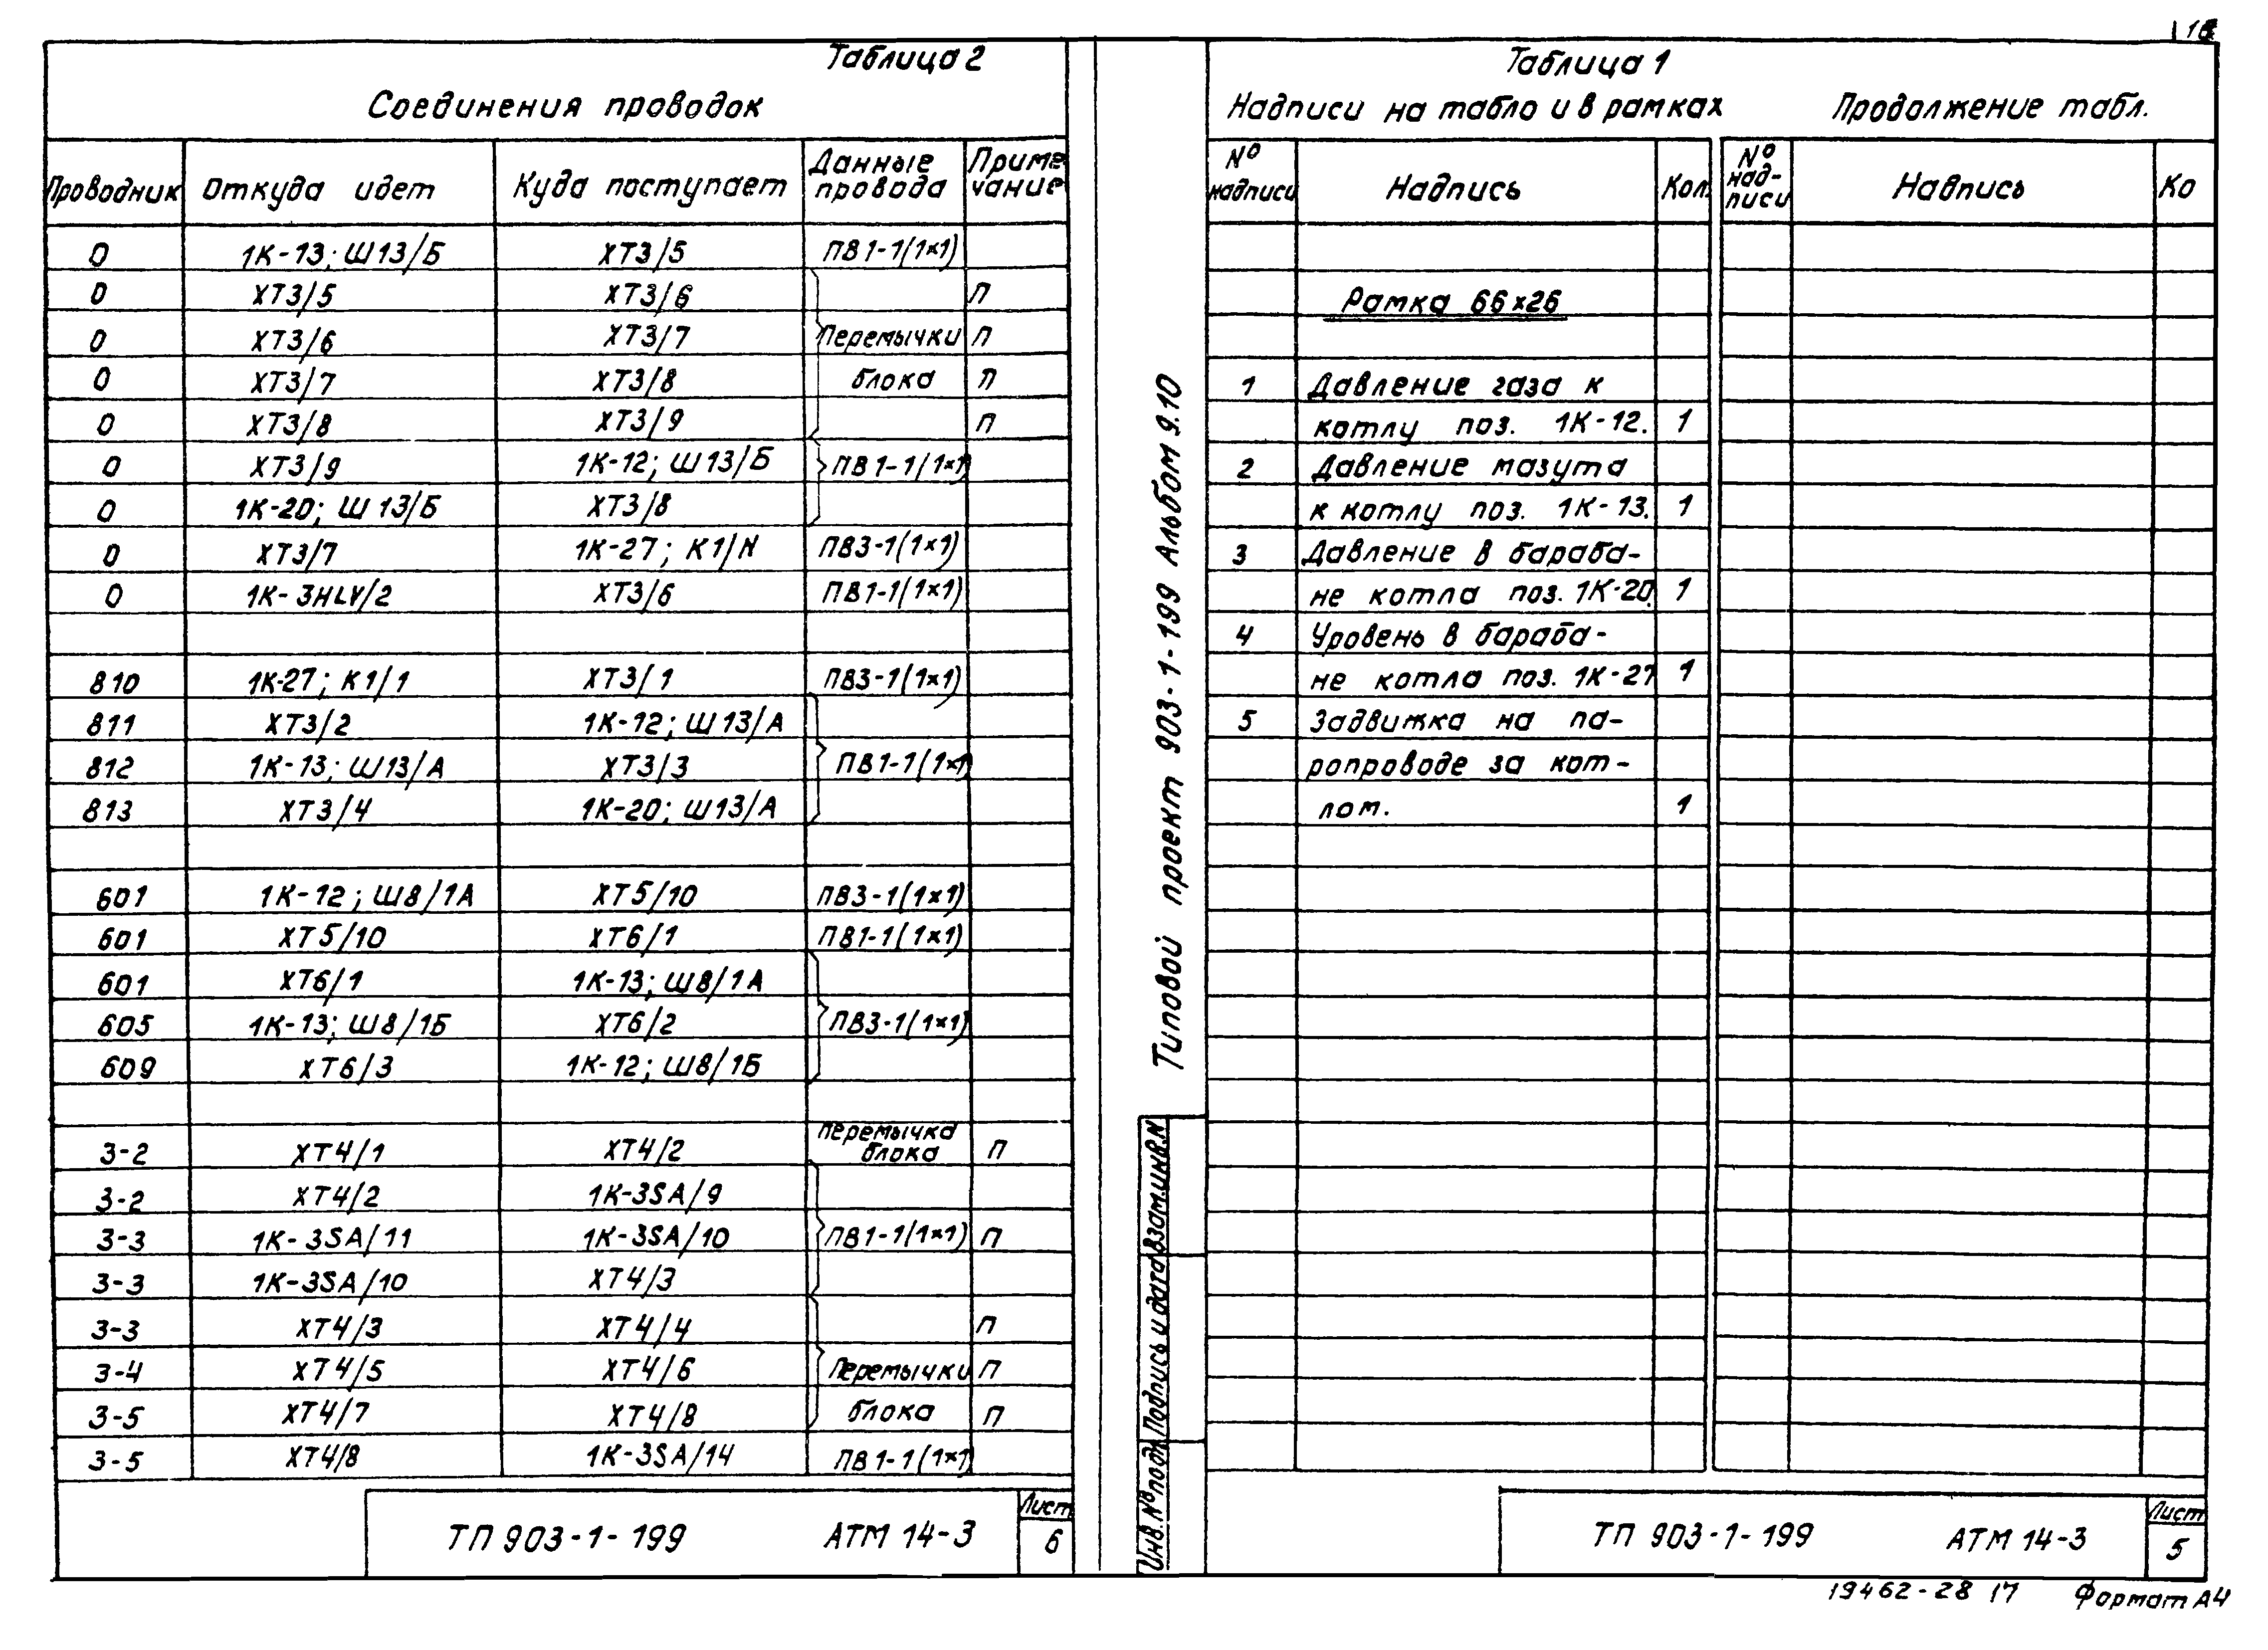 18
Таблица 2
Соединения проводок
Проводник Откуда идет Куда поступает Данные провода Примечание
0 1К-13; Ш13/Б ХТ3/5 ПВ1-1(1×1)
0 ХТ3/5 ХТ3/6 П
0 ХТ3/6 ХТ3/7 Перемычки П
0 ХТ3/7 ХТ3/8 блока П
0 ХТ3/8 ХТ3/9 П
0 ХТ3/9 1К-12; Ш13/Б ПВ1-1(1×1)
0 1К-20; Ш13/Б ХТ3/8
0 ХТ3/7 1К-27; К1/N ПВ3-1(1×1)
0 1К-3HLV/2 ХТ3/6 ПВ1-1(1×1)
810 1К-27; К1/1 ХТ3/1 ПВ3-1(1×1)
811 ХТ3/2 1К-12; Ш13/А
812 1К-13; Ш13/А ХТ3/3 ПВ1-1(1×1)
813 ХТ3/4 1К-20; Ш13/А
601 1К-12; Ш8/1А ХТ5/10 ПВ3-1(1×1)
601 ХТ5/10 ХТ6/1 ПВ1-1(1×1)
601 ХТ6/1 1К-13; Ш8/1А
605 1К-13; Ш8/1Б ХТ6/2 ПВ3-1(1×1)
609 ХТ6/3 1К-12; Ш8/1Б
3-2 ХТ4/1 ХТ4/2 перемычка блока П
3-2 ХТ4/2 1К-3SA/9
3-3 1К-3SA/11 1К-3SA/10 ПВ1-1(1×1) П
3-3 1К-3SA/10 ХТ4/3
3-3 ХТ4/3 ХТ4/4 П
3-4 ХТ4/5 ХТ4/6 Перемычки П
3-5 ХТ4/7 ХТ4/8 блока П
3-5 ХТ4/8 1К-3SA/14 ПВ1-1(1×1)
ТП 903-1-199 АТМ 14-3 Лист 6
Типовой проект 903-1-199 Альбом 9.10
Инв. № подл. Подпись и дата Взам.инв.N
Таблица 1
Надписи на табло и в рамках Продолжение табл.
№ надписи Надпись Кол. № надписи Надпись Ко
Рамка 66×26
1 Давление газа к
котлу поз. 1К-12. 1
2 Давление мазута
к котлу поз. 1К-13. 1
3 Давление в бараба-
не котла поз. 1К-20. 1
4 Уровень в бараба-
не котла поз. 1К-27 1
5 Задвижка на па-
ропроводе за кот-
лом. 1
ТП 903-1-199 АТМ 14-3 Лист 5
19462-28 17 Формат А4